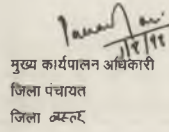 1/8/98
मुख्य कार्यपालन अधिकारी
जिला पंचायत
जिला बस्तर